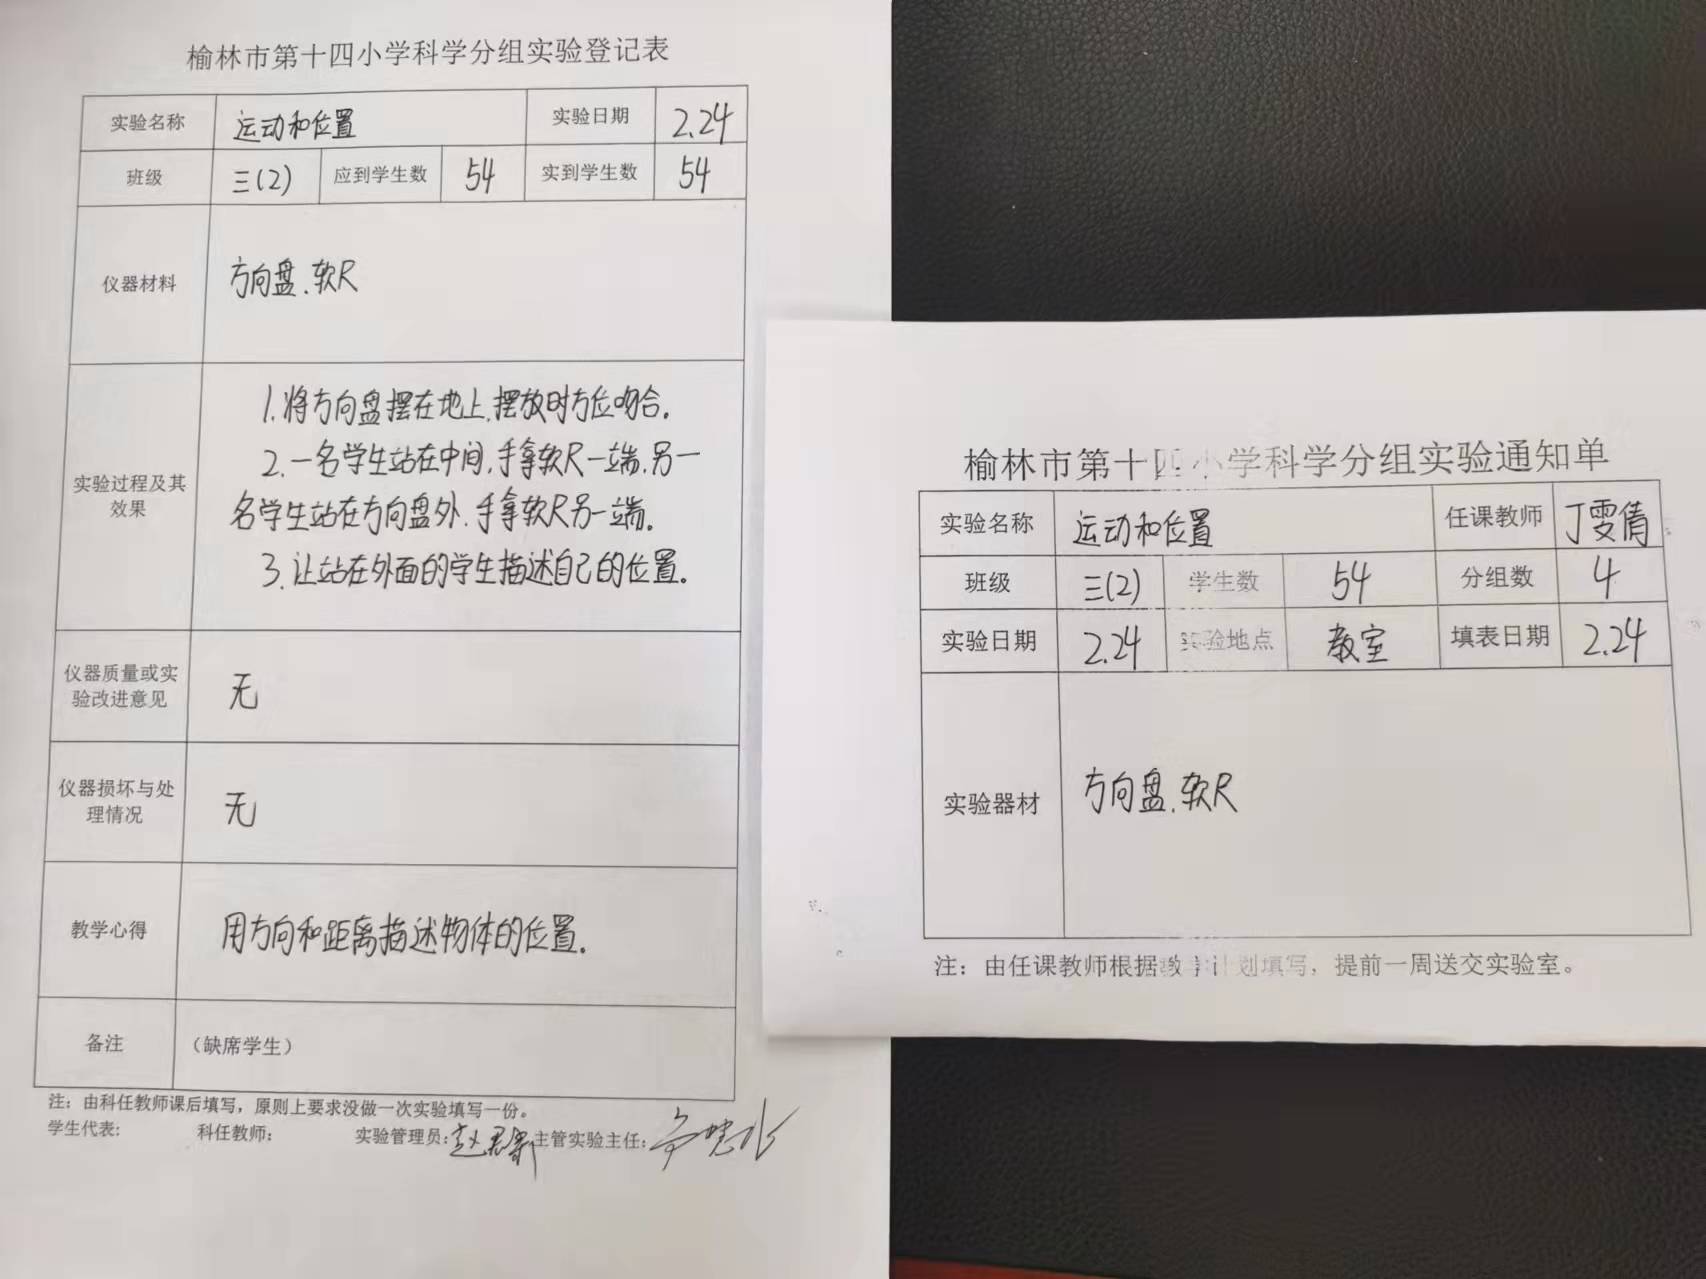 榆林市第十四小学科学分组实验登记表
实验名称 运动和位置 实验日期 2.24
班级 三(2) 应到学生数 54 实到学生数 54
仪器材料 方向盘.软尺
1.将方向盘摆在地上,摆放时方位吻合.
2.一名学生站在中间,手拿软尺一端,另一
实验过程及其
效果
名学生站在方向盘外,手拿软尺另一端.
3.让站在外面的学生描述自己的位置.
仪器质量或实
验改进意见
无
仪器损坏与处
理情况
无
教学心得 用方向和距离描述物体的位置.
备注 (缺席学生)
注：由科任教师课后填写，原则上要求没做一次实验填写一份。
学生代表: 科任教师: 实验管理员: 主管实验主任:
榆林市第十四小学科学分组实验通知单
实验名称 运动和位置 任课教师 丁雯倩
班级 三(2) 学生数 54 分组数 4
实验日期 2.24 实验地点 教室 填表日期 2.24
实验器材 方向盘.软尺
注：由任课教师根据教学计划填写，提前一周送交实验室。